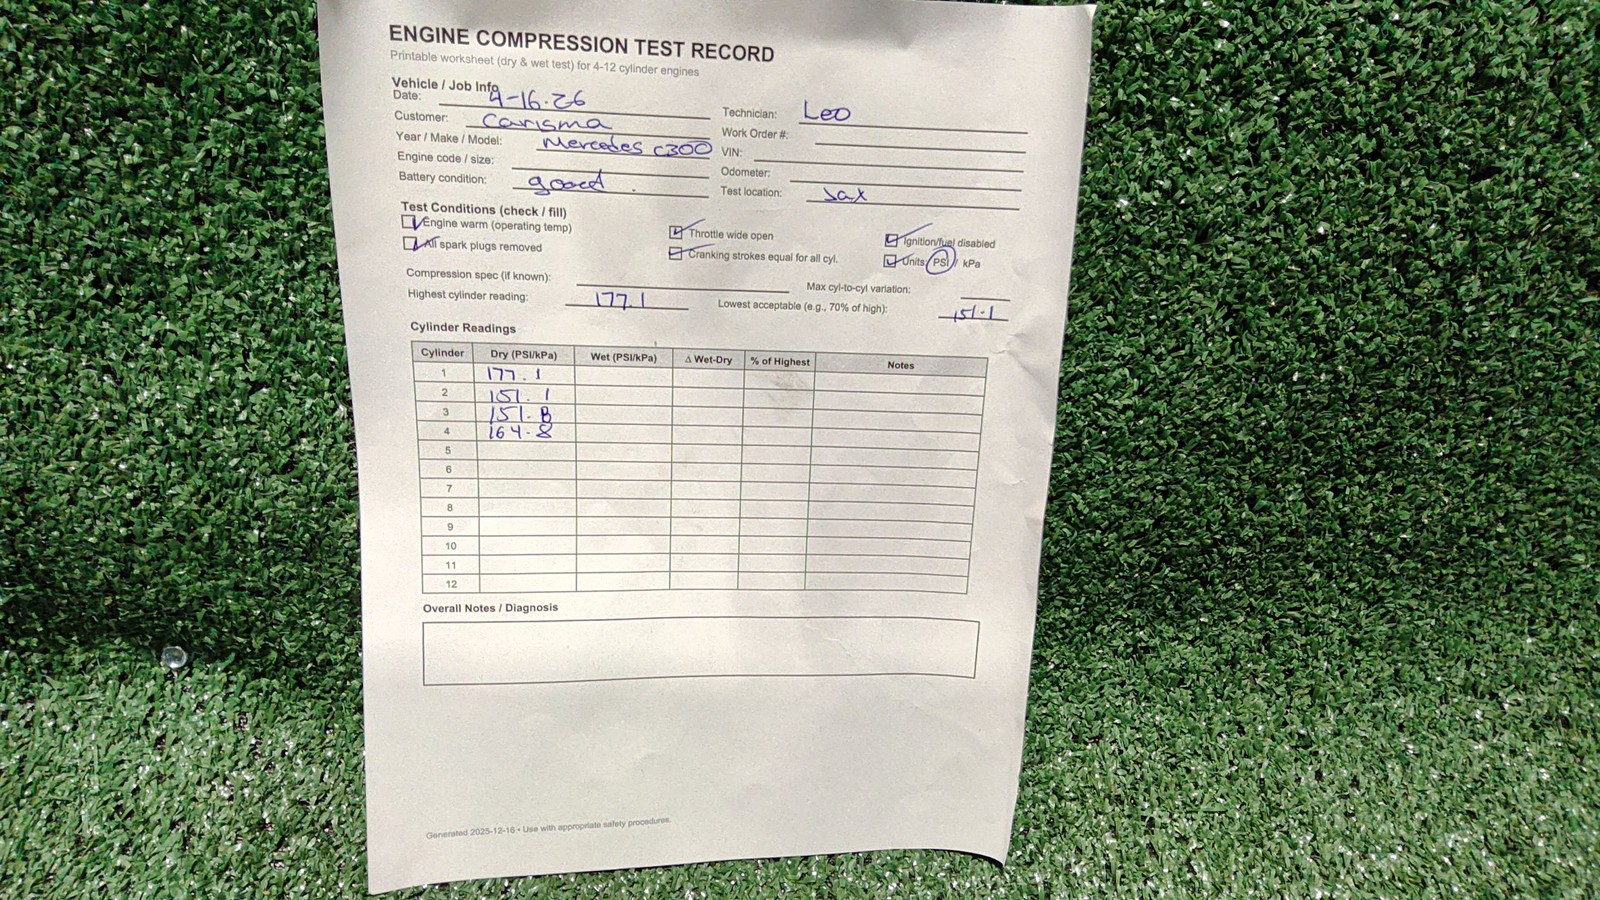 ENGINE COMPRESSION TEST RECORD
Printable worksheet (dry & wet test) for 4-12 cylinder engines
Vehicle / Job Info
Date: 4-16-26
Technician: Leo
Customer: Carisma
Work Order #:
Year / Make / Model: Mercedes C300
VIN:
Engine code / size:
Odometer:
Battery condition: good
Test location: Jax
Test Conditions (check / fill)
Engine warm (operating temp) Throttle wide open Ignition/fuel disabled
All spark plugs removed Cranking strokes equal for all cyl. Units: PSI / kPa
Compression spec (if known): Max cyl-to-cyl variation:
Highest cylinder reading: 177.1 Lowest acceptable (e.g., 70% of high): 151.1
Cylinder Readings
Cylinder Dry (PSI/kPa) Wet (PSI/kPa) Δ Wet-Dry % of Highest Notes
1 177.1
2 151.1
3 151.8
4 164.8
5
6
7
8
9
10
11
12
Overall Notes / Diagnosis
Generated 2025-12-16 • Use with appropriate safety procedures.